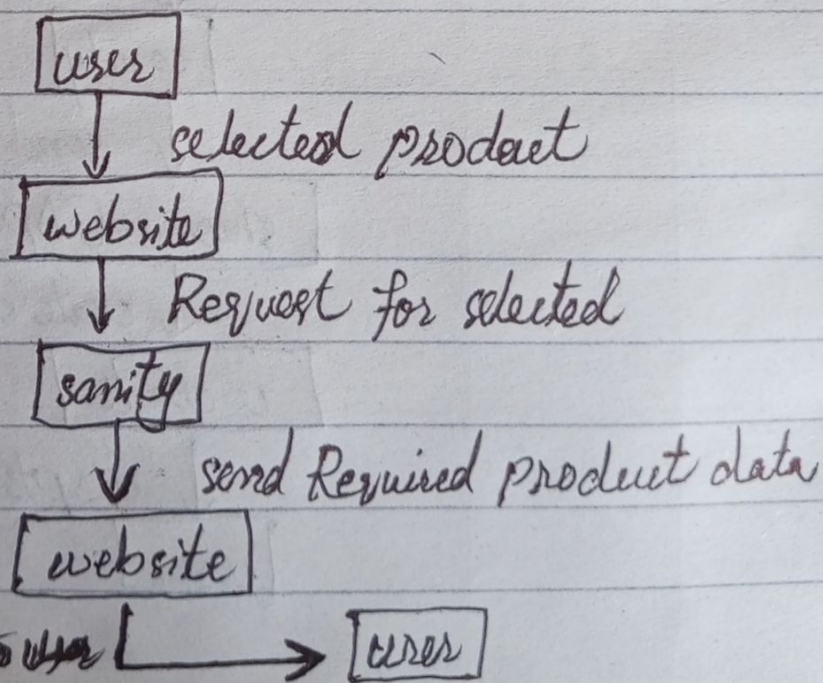 user
selected product
website
Request for selected
sanity
send Required product data
website
user
user